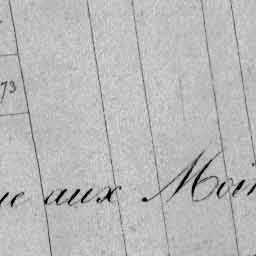 73
ue aux Moin